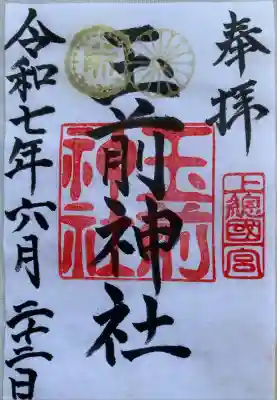 奉拝
上總國一宮
玉前神社
玉前神社
令和七年六月二十二日